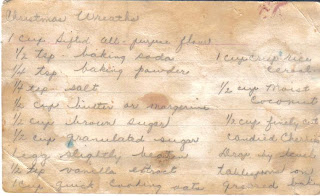 Christmas Wreaths
1 cup sifted all-purpose flour
½ tsp - baking soda
¼ tsp baking powder
¼ tsp - salt
½ cup butter or margarine
½ cup brown sugar
½ cup granulated sugar
1 egg slightly beaten
½ tsp vanilla extract
1 cup quick cooking oats
1 cup crisp rice
cereal
½ cup Moist
Coconut
½ cup finely cut
candied Cherries
Drop by
tablespoons on
greased